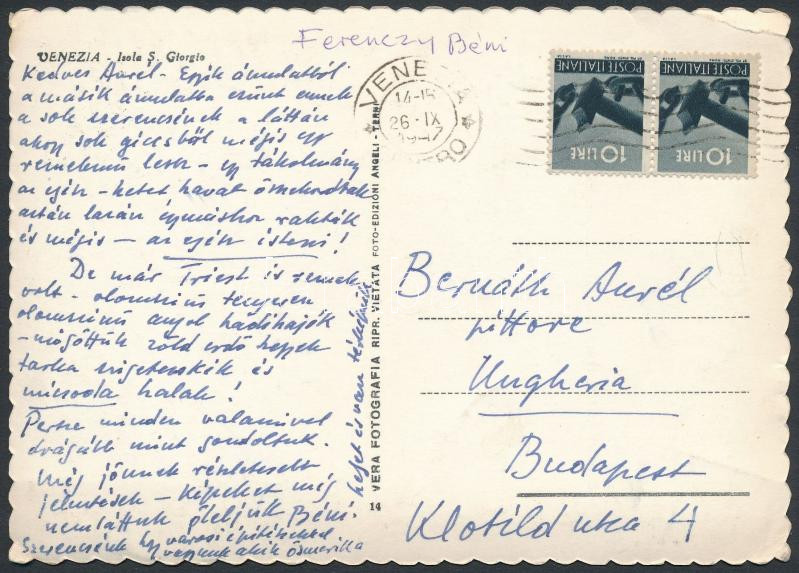 Ferenczy Béni
VENEZIA - Isola S. Giorgio
Kedves Aurél - Egyik ámulatból
a másik ámulatba ennek
a sok szerencsének a láttán
ahogy sok giccsből mégis egy
remekmű lesz - egy tákolmány
az egész - hetet havat összehordtak
aztán lazán egymáshoz rakták
és mégis - az egész isteni!
De már Triest is remek
volt - olomszínű tengeren
olomszínű angol hadihajók
- mögöttük zöld erdő hegyek
tarka szigetecskék és
micsoda halak!
Persze minden valamivel
drágább mint gondoltuk.
Még jönnek részletesebb
jelentések - Képeket még
nem láttunk öleljük Béni
Szerencsénk hogy városi építészekkel
vagyunk akik
helyet és van
VERA FOTOGRAFIA RIPR. VIETATA FOTO-EDIZIONI ANGELI - TERNI
14
VENEZIA
14-15
26·IX
1947
POSTE ITALIANE
10 LIRE
POSTE ITALIANE
10 LIRE
Bernáth Aurél
pittore
Ungheria
Budapest
Klotild utca 4